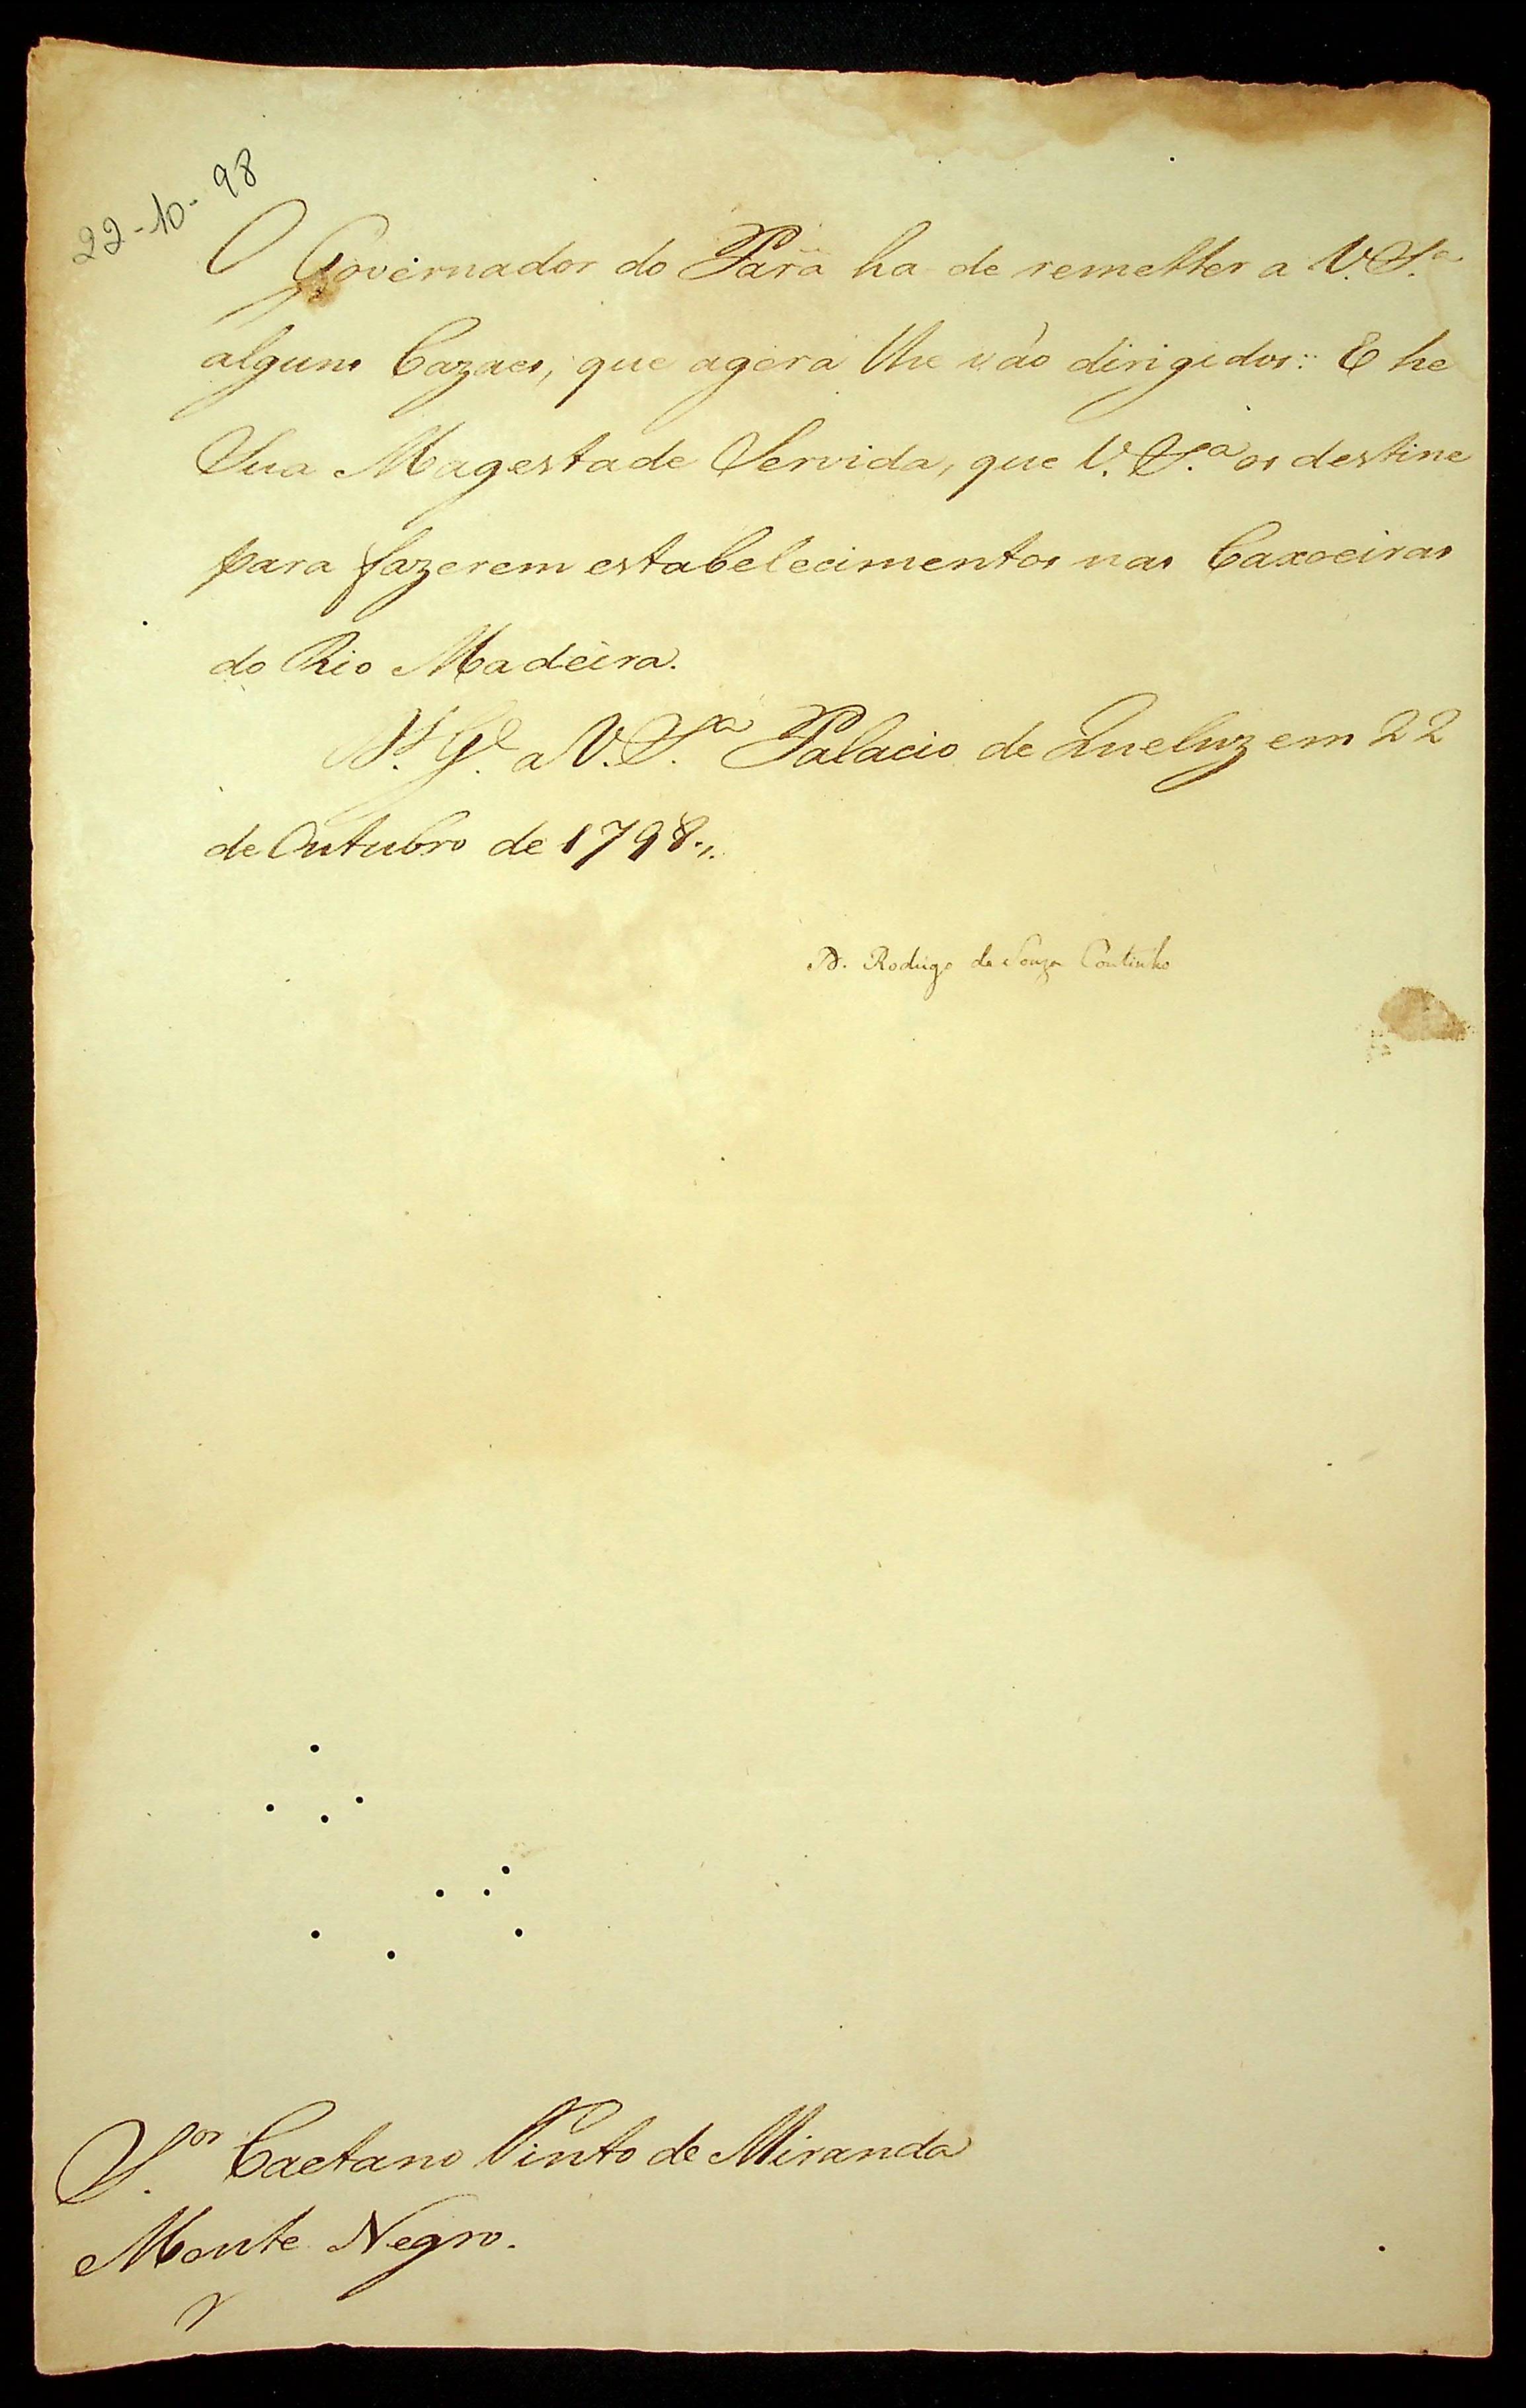 22-10-98
O Governador do Pará ha de remetter a V. S.ª
alguns Cazaes, que agora lhe vão dirigidos: E he
Sua Magestade Servida, que V. S.ª os destine
para fazerem estabelecimentos nas Caxoeiras
do Rio Madeira.
D.s G.e a V. S.ª Palacio de Queluz em 22
de Outubro de 1798.,,
D. Rodrigo de Souza Coutinho
S.or Caetano Pinto de Miranda
Monte Negro.